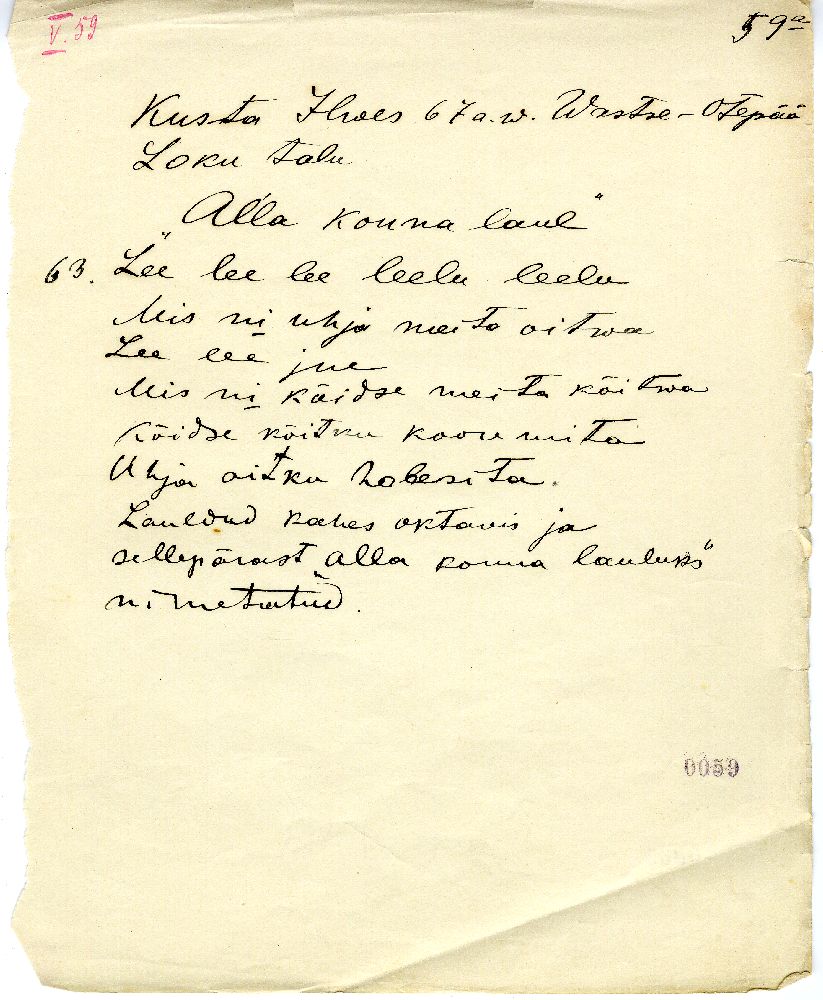 V. 59
59a
Kusta Ilwes 67 a. w. Wastse-Otepää
Loku talu
„Alla konna laul"
63. Lee lee lee leelu leelu
Mis ni uhja meita oitwa
Lee lee jne
Mis ni köidse meita köitwa
Köidse köitku koorumita
Uhja oitku hobesita.
Lauldud kahes oktavis ja
sellepärast „alla konna lauluks"
nimetatud.
0059